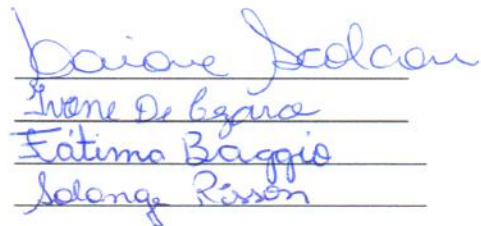 Daiane Scolaou
Ivone De Cezaro
Fátima Baggio
Solange Risson